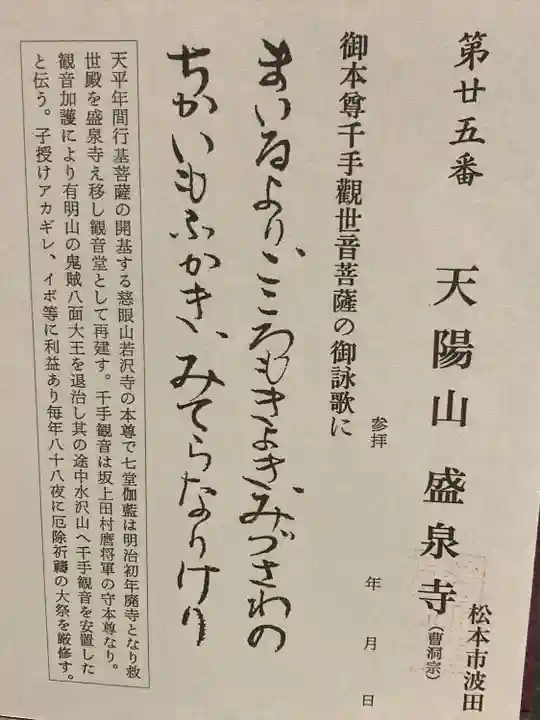 第廿五番 天陽山 盛泉寺 (曹洞宗) 松本市波田
参拝 年 月 日
御本尊千手觀世音菩薩の御詠歌に
まいるより、こころもきよき、みづさわの
ちかいもふかき、みてらなりけり
天平年間行基菩薩の開基する慈眼山若沢寺の本尊で七堂伽藍は明治初年廃寺となり救
世殿を盛泉寺え移し観音堂として再建す。千手観音は坂上田村麿将軍の守本尊なり。
観音加護により有明山の鬼賊八面大王を退治し其の途中水沢山へ千手観音を安置した
と伝う。子授けアカギレ、イボ等に利益あり毎年八十八夜に厄除祈禱の大祭を厳修す。